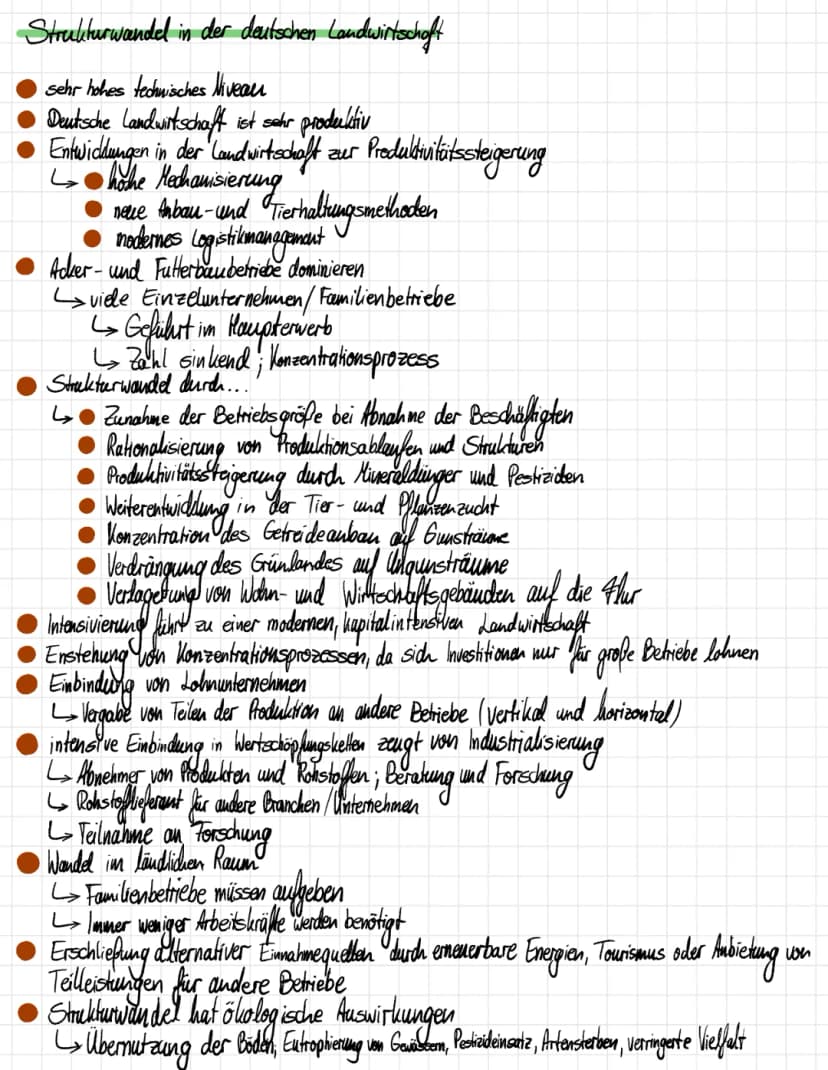 Strukturwandel in der deutschen Landwirtschaft
sehr hohes technisches Niveau
Deutsche Landwirtschaft ist sehr produktiv
Entwicklungen in der Landwirtschaft zur Produktivitätssteigerung
↳ ● hohe Mechanisierung
● neue Anbau- und Tierhaltungsmethoden
● modernes Logistikmanagement
Acker- und Futterbaubetriebe dominieren
↳ viele Einzelunternehmen/Familienbetriebe
↳ Geführt im Haupterwerb
↳ Zahl sinkend; Konzentrationsprozess
Strukturwandel durch...
↳ ● Zunahme der Betriebsgröße bei Abnahme der Beschäftigten
● Rationalisierung von Produktionsabläufen und Strukturen
● Produktivitätssteigerung durch Mineraldünger und Pestiziden
● Weiterentwicklung in der Tier- und Pflanzenzucht
● Konzentration des Getreideanbau auf Gunsträume
● Verdrängung des Grünlandes auf Ungunsträume
● Verlagerung von Wohn- und Wirtschaftsgebäuden auf die Flur
Intensivierung führt zu einer modernen, kapitalintensiven Landwirtschaft
Enstehung von Konzentrationsprozessen, da sich Investitionen nur für große Betriebe lohnen
Einbindung von Lohnunternehmen
↳ Vergabe von Teilen der Produktion an andere Betriebe (vertikal und horizontal)
intensive Einbindung in Wertschöpfungsketten zeugt von Industrialisierung
↳ Abnehmer von Produkten und Rohstoffen; Beratung und Forschung
↳ Rohstofflieferant für andere Branchen/Unternehmen
↳ Teilnahme an Forschung
Wandel im ländlichen Raum
↳ Familienbetriebe müssen aufgeben
↳ Immer weniger Arbeitskräfte werden benötigt
Erschließung alternativer Einnahmequellen durch erneuerbare Energien, Tourismus oder Anbietung von
Teilleistungen für andere Betriebe
Strukturwandel hat ökologische Auswirkungen
↳ Übernutzung der Böden, Eutrophierung von Gewässern, Pestizideinsatz, Artensterben, verringerte Vielfalt